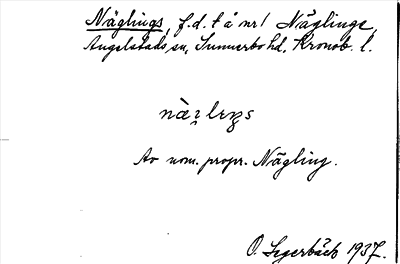 Näglings, f.d. t å nr 1 Näglinge,
Angelstads sn, Sunnerbo hd, Kronob. l.
Av nom. propr. Nägling.
O. Segerbäck 1937.